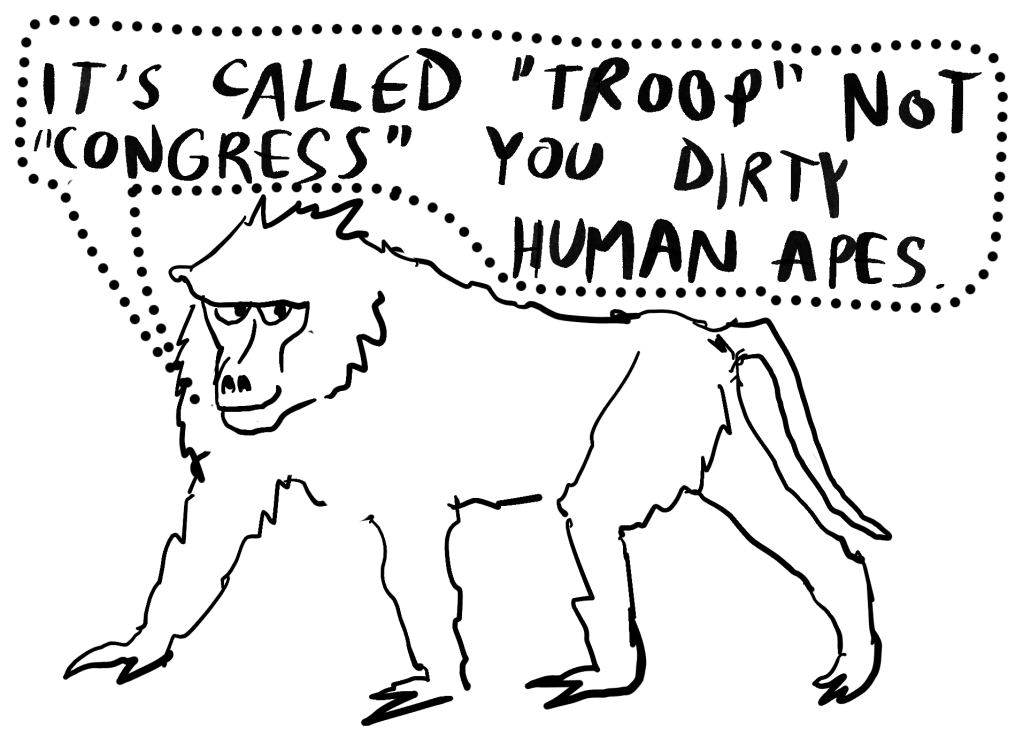 IT'S CALLED "TROOP" NOT
"CONGRESS" YOU DIRTY
HUMAN APES.